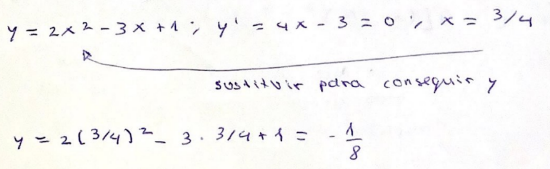 y = 2x² - 3x + 1 ; y' = 4x - 3 = 0 ; x = 3/4
sustituir para conseguir y
y = 2(3/4)² - 3 · 3/4 + 1 = - 1/8